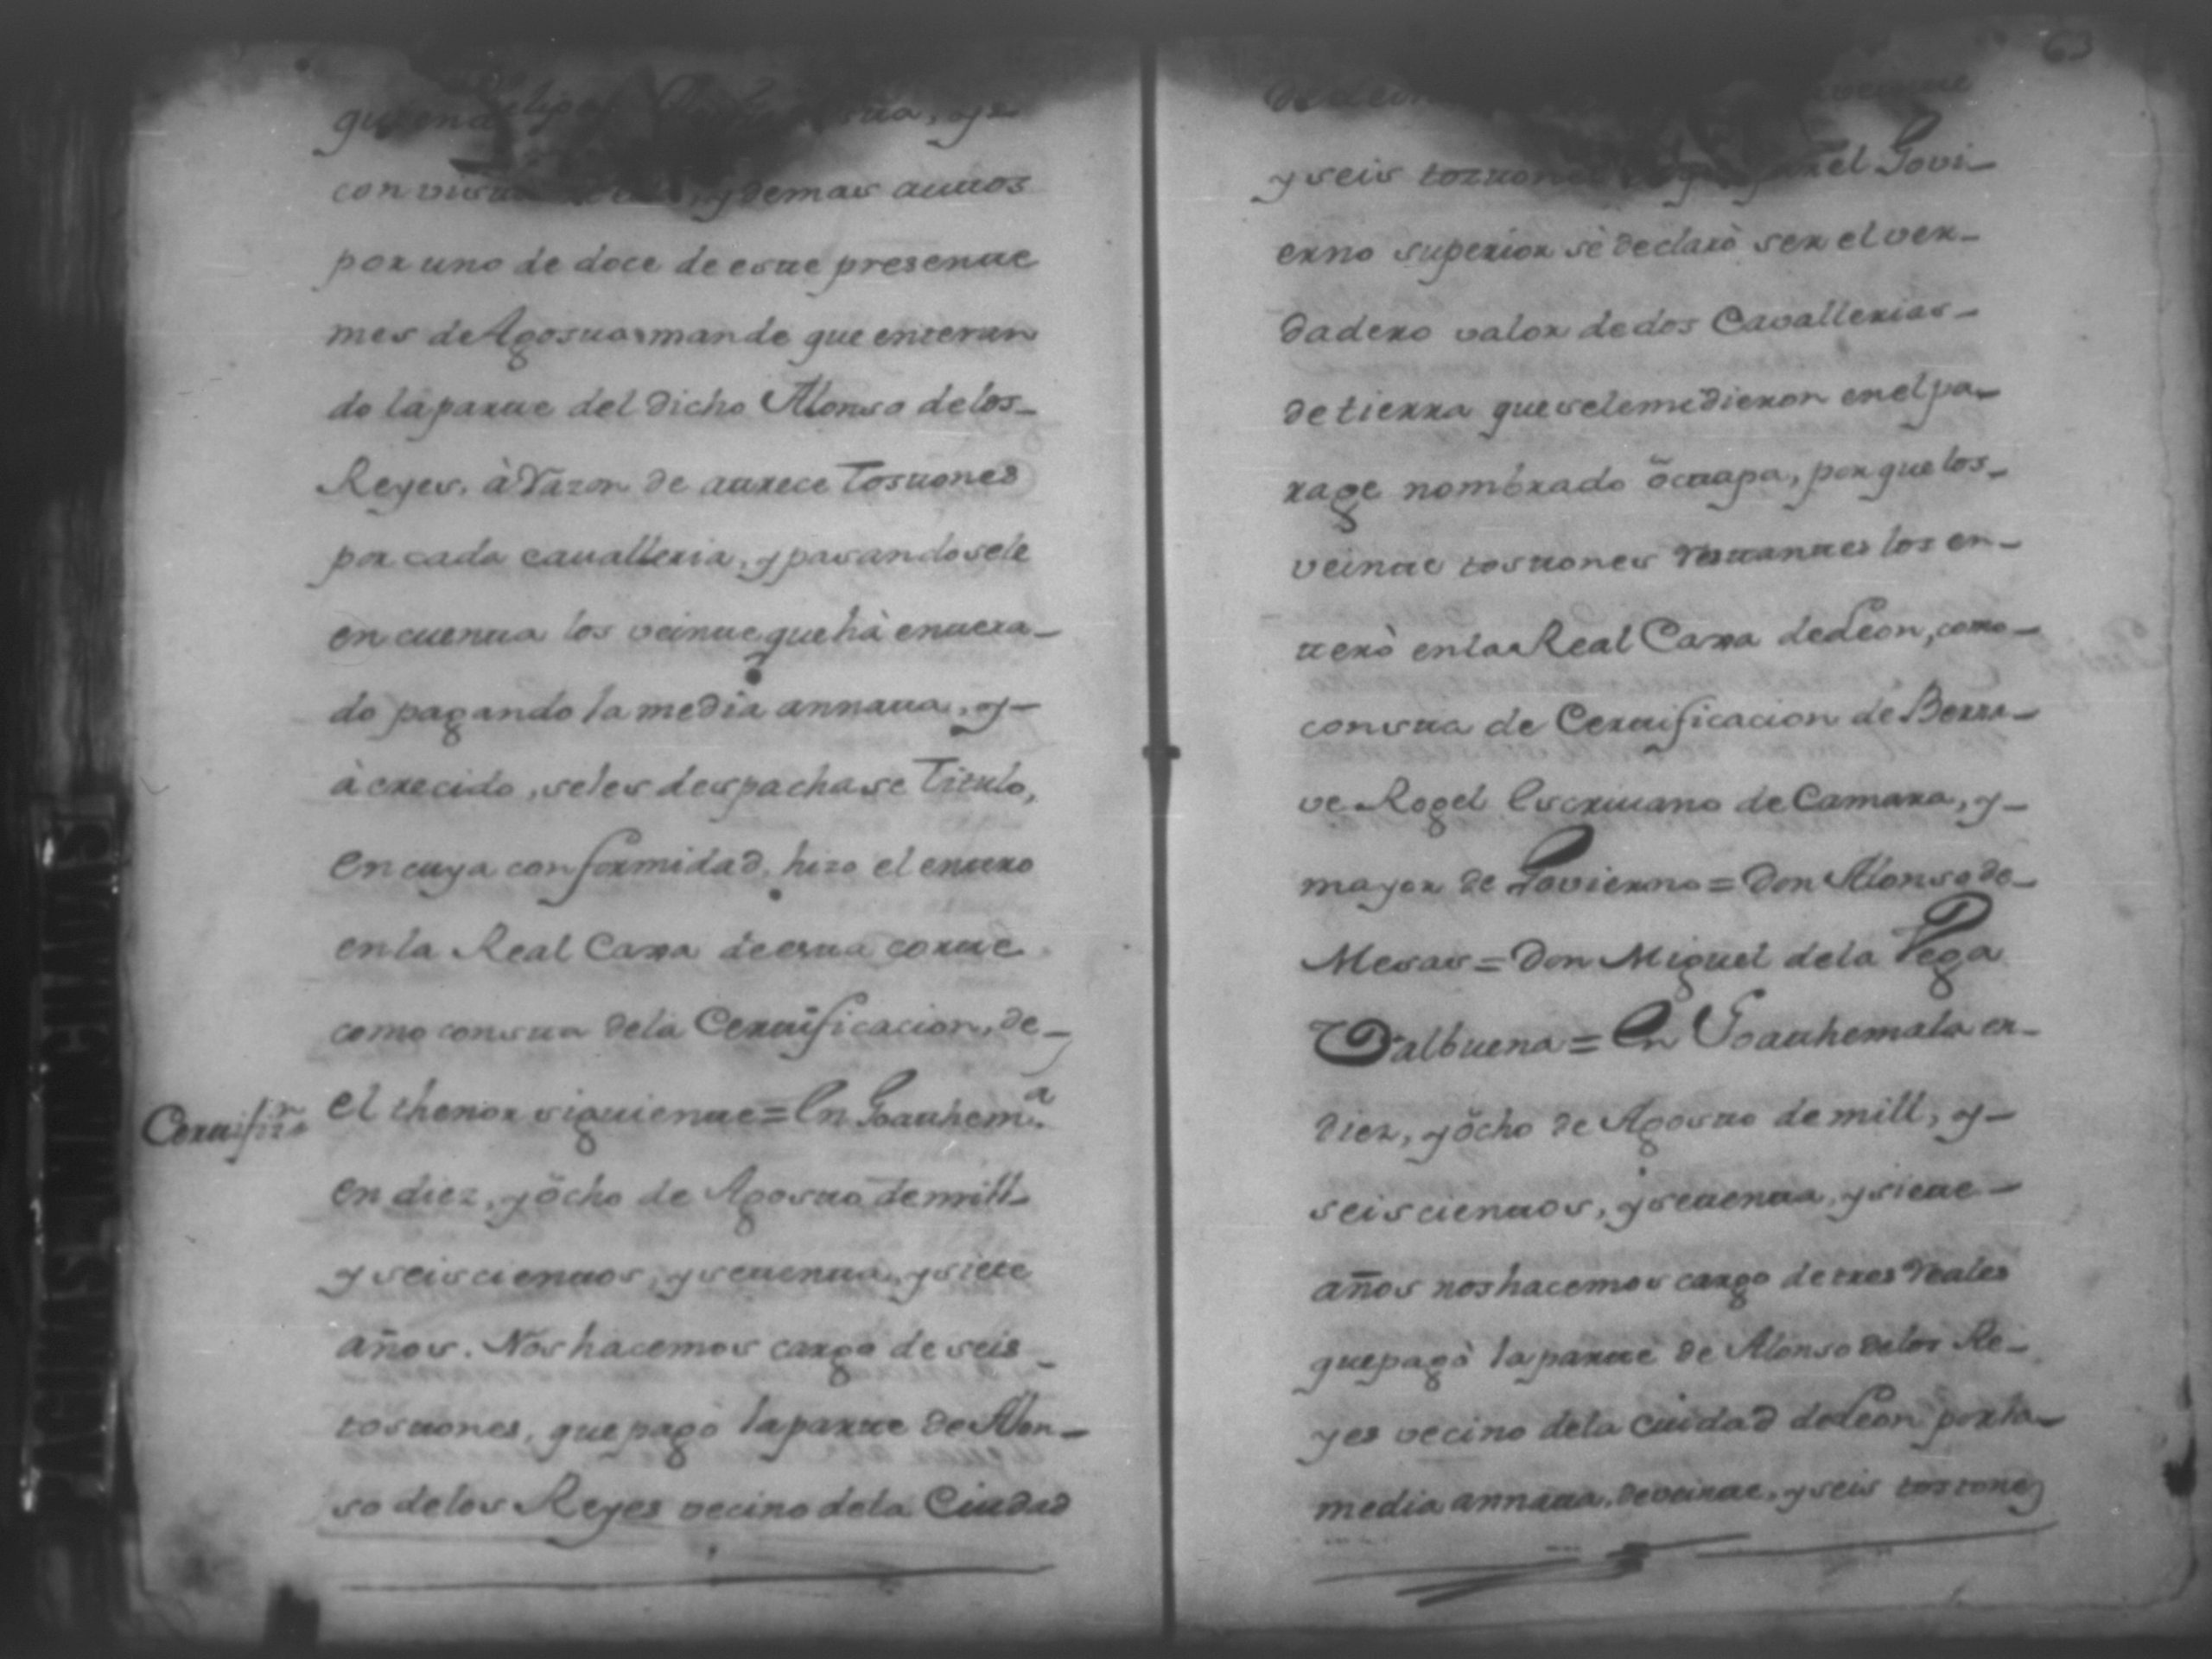 con vista y demas autos
por uno de doce de este presente
mes de Agosto mande que enteran
do la parte del dicho Alonso de los
Reyes, à razon de trece tostones
por cada cavalleria, y pasandosele
en cuenta los veinte que hà entera-
do pagando la media annata, y
à crecido, seles despachase Titulo,
en cuya conformidad, hizo el entero
en la Real Caxa de esta corte
como consta dela Certificacion, de
Certifi.on
el thenor siguiente = En Goathem.a
en diez, y ôcho de Agosto de mill
y seiscientos, y setenta, y siete
años. Nos hacemos cargo de seis
tostones, que pagò la parte de Alon-
so delos Reyes vecino dela Ciudad
63
y seis tostones el Govi-
erno superior sè declarò ser el ver-
dadero valor de dos Cavallerias
de tierra que sele midieron en el pa-
rage nombrado ôctapa, porque los
veinte tostones restantes los en-
terò en la Real Caxa de Leon, como
consta de Certificacion de Berra-
ve Rogel Escrivano de Camara, y
mayor de Govierno = Don Alonso de
Mesas = Don Miguel dela Vega
Valbuena = En Goathemala en
diez, y ôcho de Agosto de mill, y
seiscientos, y setenta, y siete
años nos hacemos cargo de tres reales
que pagò la parte de Alonso delos Re-
yes vecino dela Ciudad de Leon por la
media annata, de veinte, y seis tostones